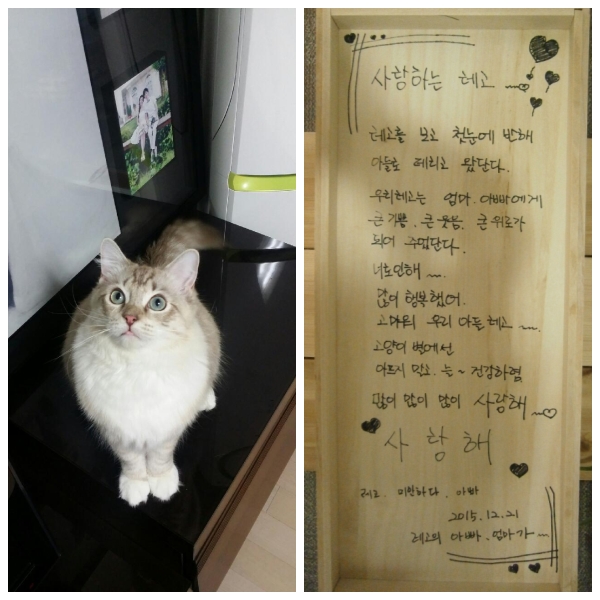 사랑하는 레고 ~~♡
레고를 보고 첫눈에 반해
아들로 데리고 왔단다.
우리레고는 엄마. 아빠에게
큰 기쁨. 큰 웃음. 큰 위로가
되어 주었단다.
너로인해 ~~.
많이 행복했어.
고마워 우리 아들 레고 ~~.
고양이 별에선
아프지 말고. 늘~ 건강하렴
많이 많이 많이 사랑해 ~~♡
사랑해
레고. 미안하다. 아빠
2015.12.21
레고의 아빠. 엄마가~~